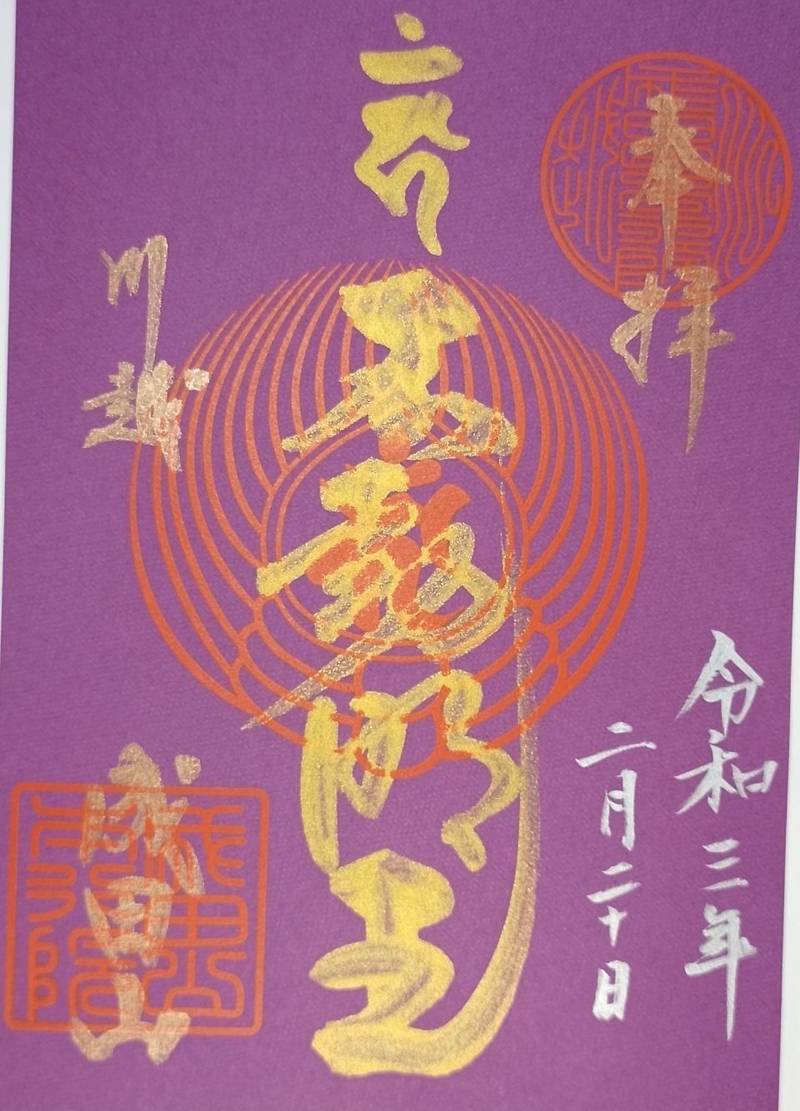 奉拝
令和三年
二月二十日
不動明王
川越
成田山